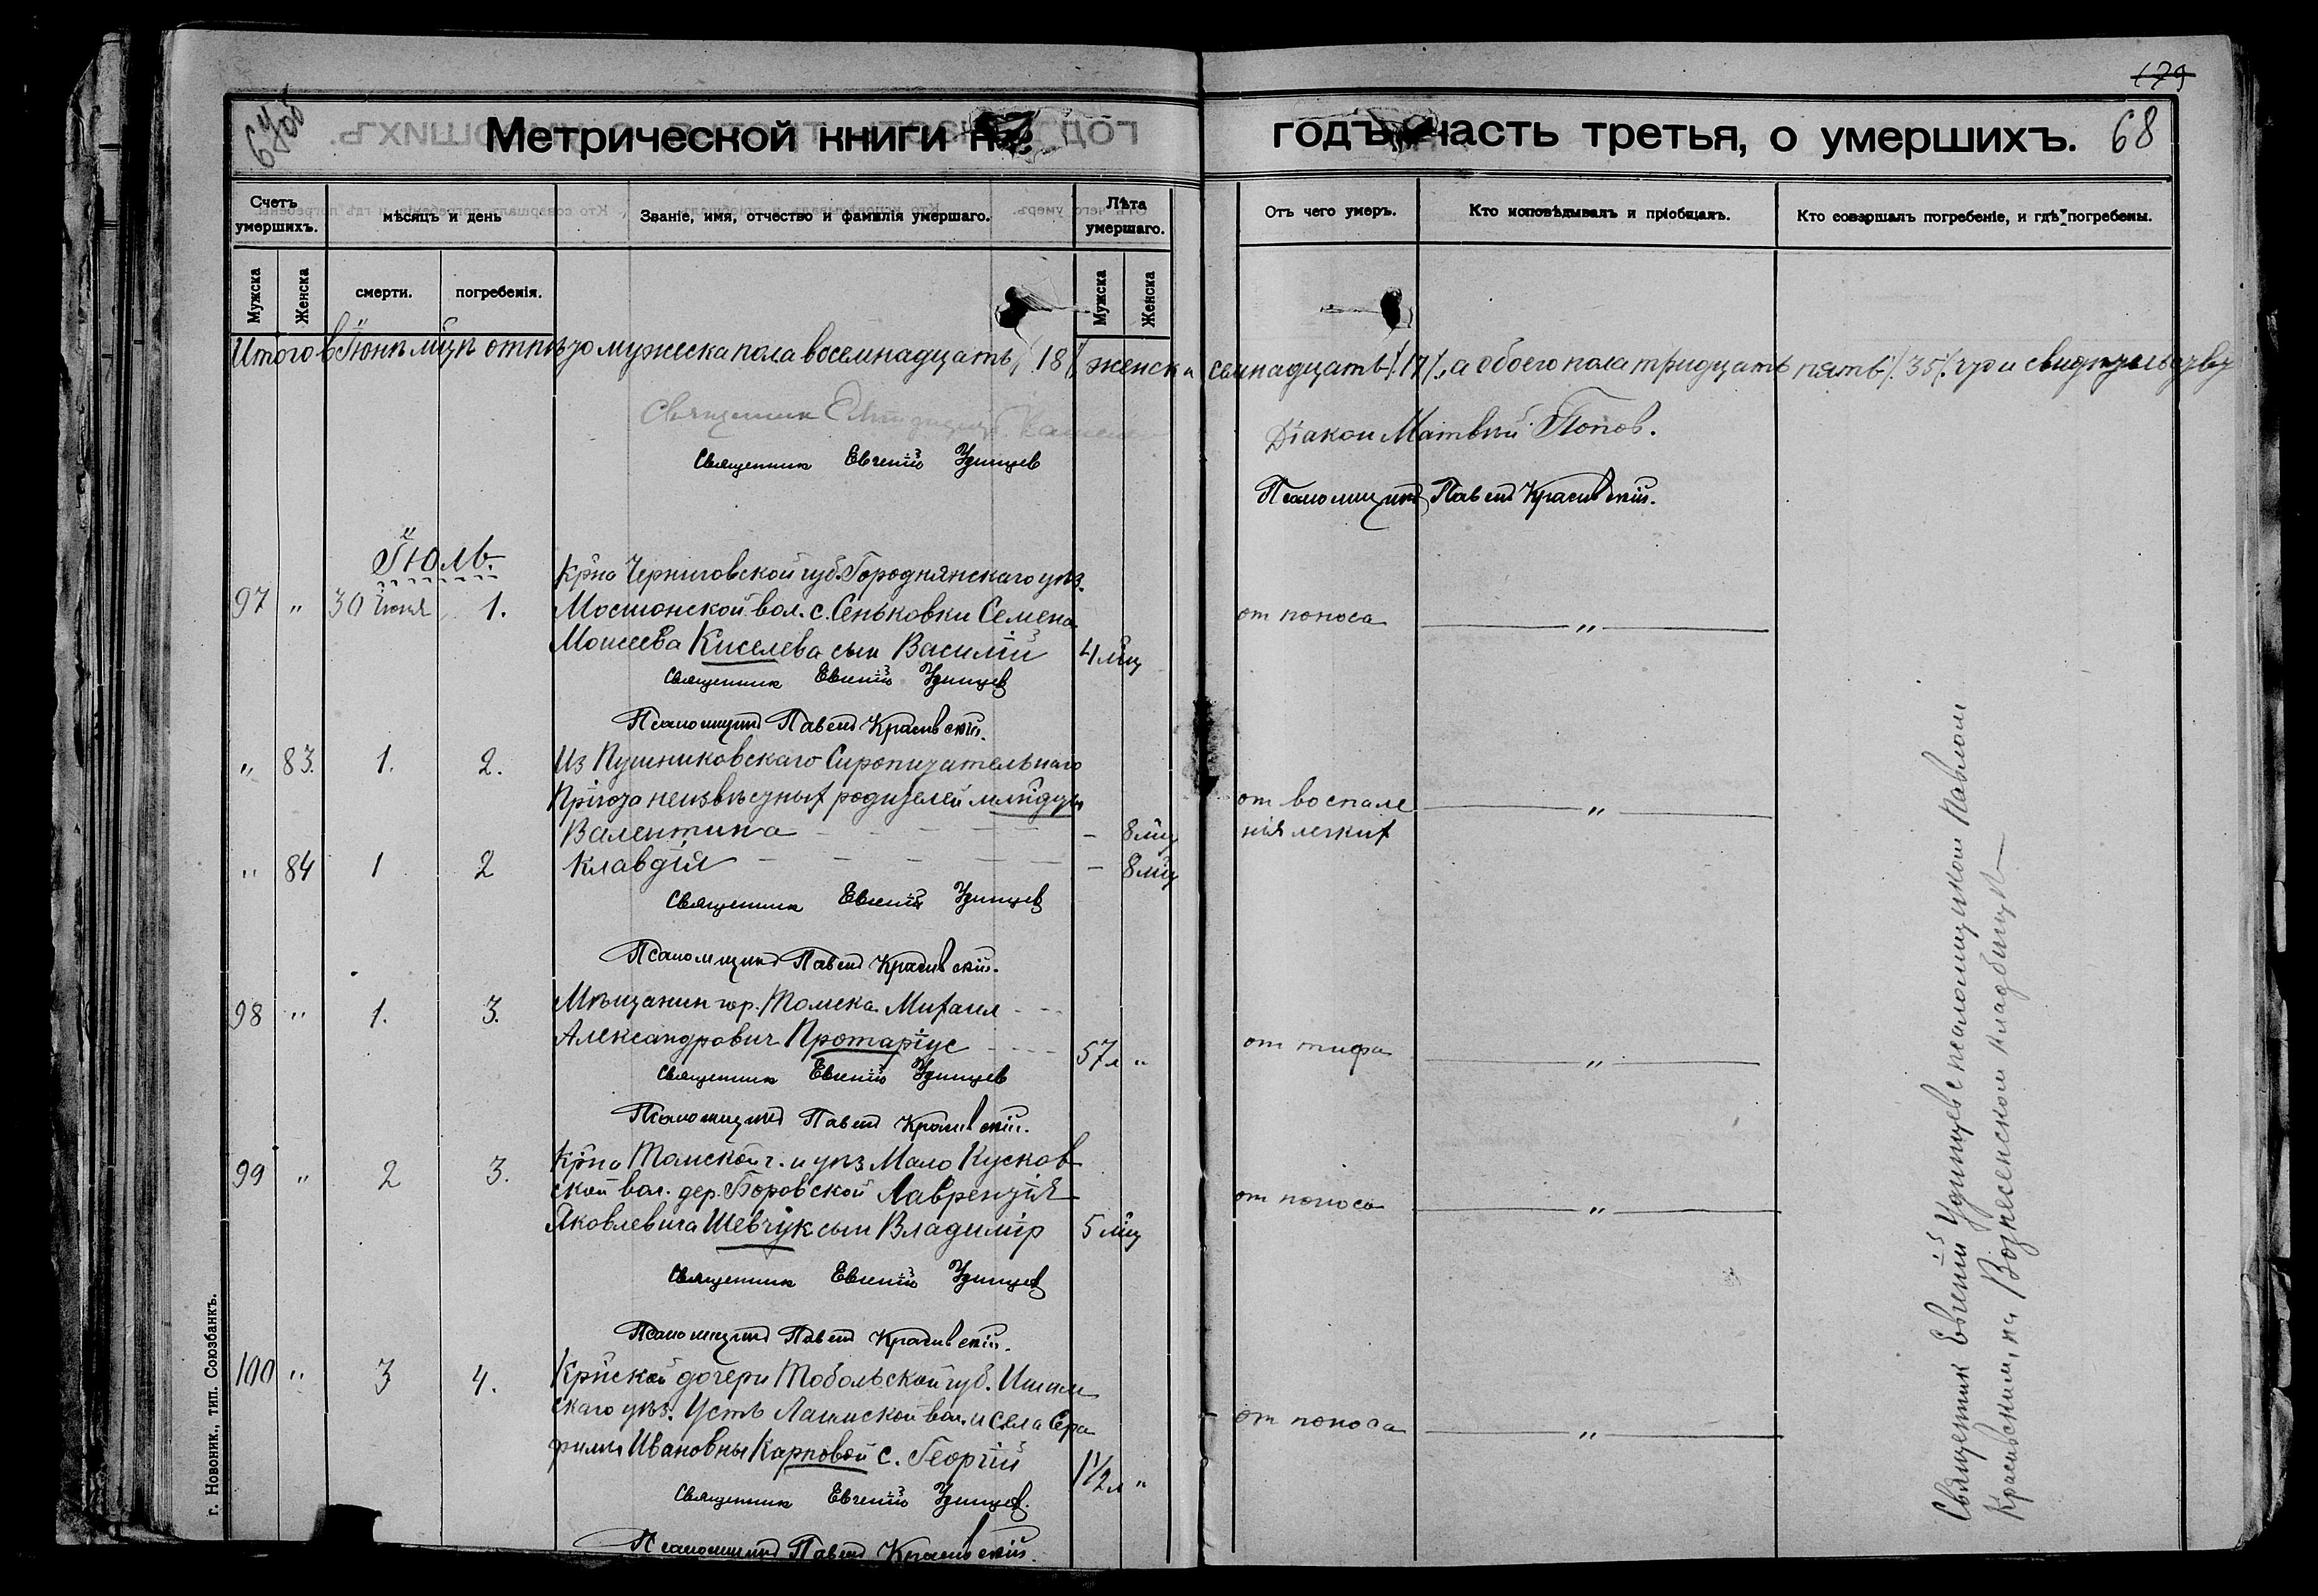 179
Метрической книги на
годъ часть третья, о умершихъ. 68
Счетъ умершихъ.
мѣсяцъ и день
Званіе, имя, отчество и фамилія умершаго.
Лѣта умершаго.
Отъ чего умеръ.
Кто исповѣдывалъ и пріобщалъ.
Кто совершалъ погребеніе, и гдѣ погребены.
Мужска
Женска
смерти.
погребенія.
Мужска
Женска
Итого в Іюнѣ мцѣ отпѣто мужеска пола восемнадцать /18/, женска семнадцать /17/, а обоего пола тридцать пять /35/. что и свидѣтельству
Священник
Священник Евгеній Удинцев
Діакон Матвѣй Попов.
Псаломщик Павел Красивскій.
Іюль.
Кр͠на Черниговской губ. Городнянскаго уѣз.
97 " 30 Іюня 1. вол. с. Сеньковки Семена
Моисеева Киселева сын Василій 4 мц
от поноса "
Священник Евгеній Удинцев
Псаломщик Павел Красивскій.
" 83. 1. 2. Из Пушниковскаго Сиропитательнаго
Пріюта неизвѣстных родителей
Валентина - 8 мц
от воспале "
нія легких
" 84 1 2 Клавдія - 8 мц
Священник Евгеній Удинцев
Псаломщик Павел Красивскій.
98 " 1. 3. Мѣщанин гор. Томска Михаил
Александрович Протаріус 57 л "
от тифа "
Священник Евгеній Удинцев
Псаломщик Павел Красивскій.
99 " 2 3. Кр͠на Томской г. и уѣз Мало Кусков
ской вол. дер. Боровской Лаврентія
Яковлевича Шевчук сын Владимір 5 мц
от поноса "
Священник Евгеній Удинцев
Псаломщик Павел Красивскій.
100 " 3 4. Кр͠нской дочери Тобольской губ. Ишим
скаго уѣз. Усть Ламиской вол. и села Сера
фимы Ивановны Карповой с. Георгій 1 1/2 л "
от поноса "
Священник Евгеній Удинцев.
Псаломщик Павел Красивскій.
Священник Евгеній Удинцев с псаломщиком Павлом
Красивским, на Вознесенском кладбищѣ
г. Новоник., тип. Союзбанкъ.